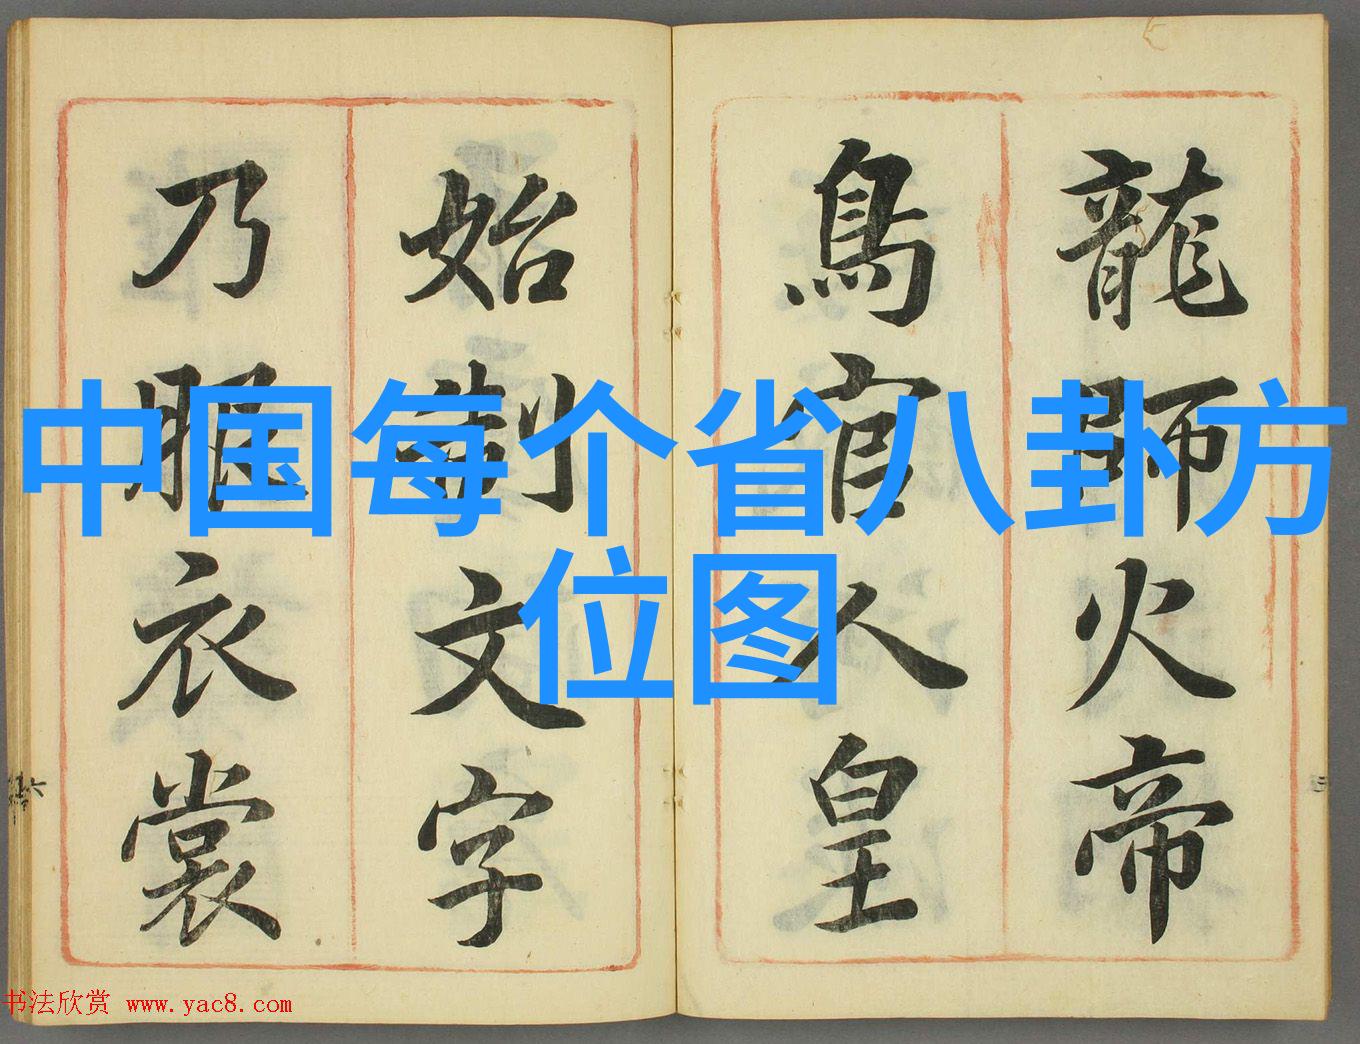 龍師火帝
鳥官人皇
始制文字
乃服衣裳
中国每个省八卦方
位图
书法欣赏 www.yac8.com